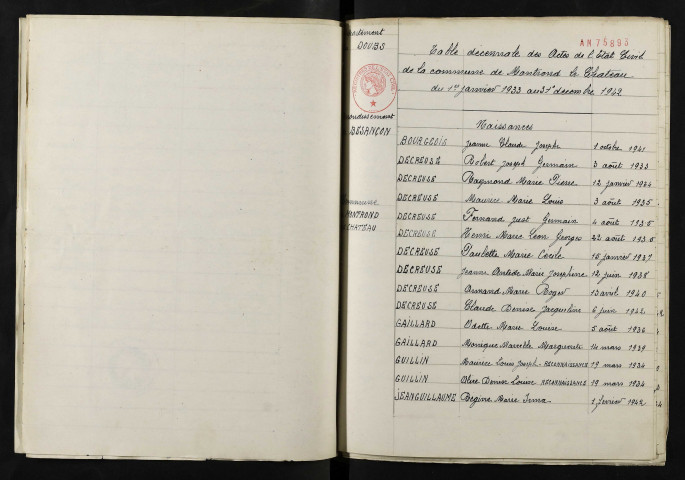 AN 75893
DOUBS
BESANÇON
Table décennale des Actes de l'Etat Civil
de la commune de Montrond le Château
du 1er janvier 1933 au 31 décembre 1942
Naissances
BOURGEOIS Jeanne Claude Josephe 1 octobre 1941
DECREUSE Robert Joseph Germain 3 août 1933
DECREUSE Raymond Marie Pierre 12 janvier 1934
DECREUSE Maurice Marie Louis 3 août 1935
DECREUSE Fernand Just Germain 4 août
DECREUSE Henri Marie Léon Georges 22 août
DECREUSE Paulette Marie Cécile 15 janvier 1937
DECREUSE Jeanne Marie Josephine 12 juin 1938
DECREUSE Armand Marie Roger 13 avril 1940
DECREUSE Claude Denise Jacqueline 6 juin 1942
GAILLARD Odette Marie Louise 5 août 1936
GAILLARD Monique Marcelle Marguerite 14 mars 1939
GUILLIN Maurice Louis Joseph - RECONNAISSANCE 19 mars 1934
GUILLIN Denise Louise RECONNAISSANCE 19 mars 1934
JEANGUILLAUME Régine Marie Irma 1 février 1942